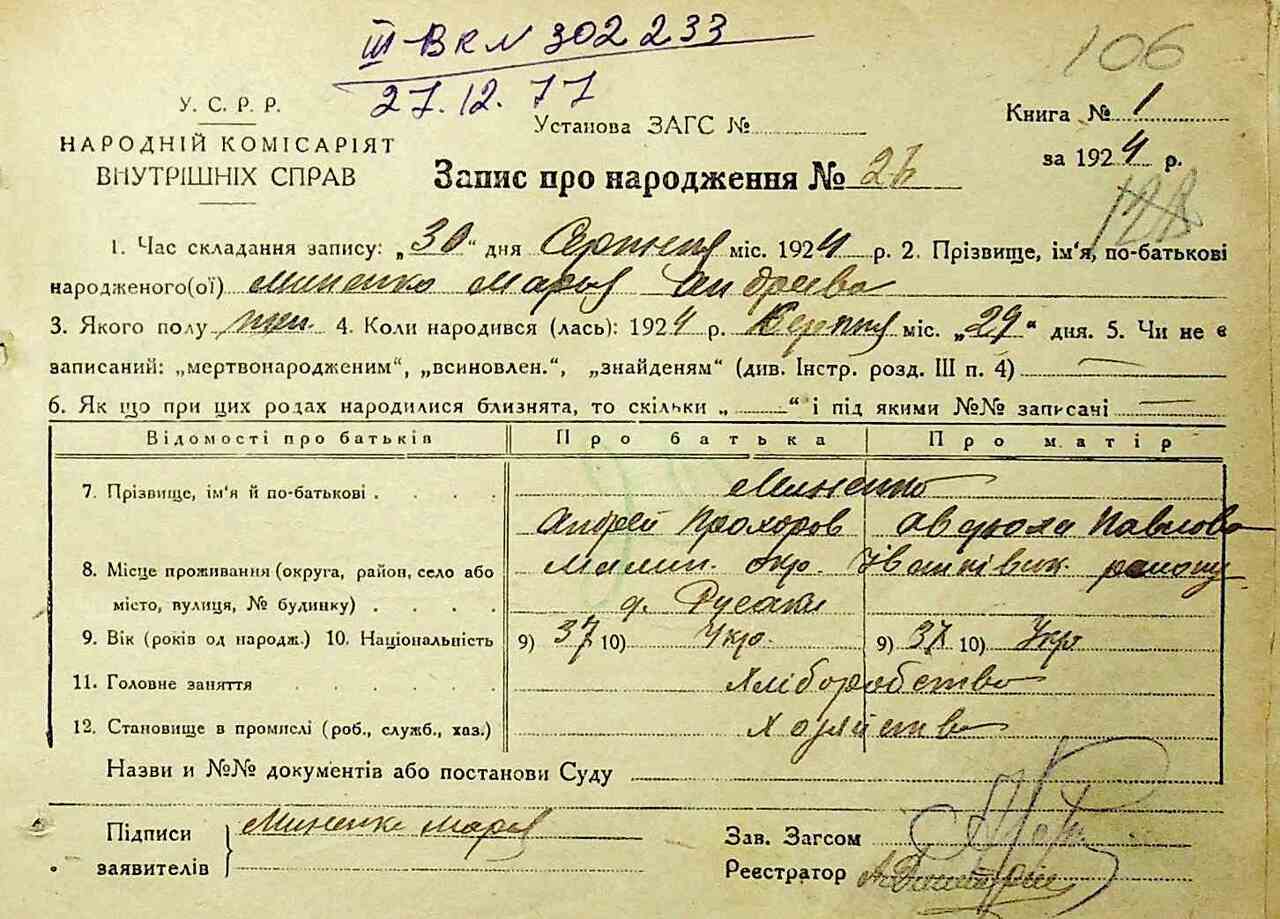 III-ВК N 302233
27.12.77
106
У. С. Р. Р.
НАРОДНІЙ КОМІСАРІЯТ
ВНУТРІШНІХ СПРАВ
Установа ЗАГС №
Книга № 1
за 1924 р.
Запис про народження № 26
128
1. Час складання запису: „30“ дня Серпня міс. 1924 р. 2. Прізвище, ім‘я, по-батькові
народженого(ої) Миненко Мария Андреева
3. Якого полу жен. 4. Коли народився (лась): 1924 р. Серпня міс. „29“ дня. 5. Чи не є
записаний: „мертвонародженим“, „всиновлен.“, „знайденям“ (див. Інстр. розд. III п. 4)
6. Як що при цих родах народилися близнята, то скільки „ “ і під якими №№ записачі
Відомості про батьків Про батька Про матір
7. Прізвище, ім‘я й по-батькові . . . . Миненко
Андрей Прохоров Авдюха Павлова
8. Місце проживання (округа, район, село або Малин. окр. Іванківск. району
місто, вулиця, № будинку) . . . . д. Русаки
9. Вік (років од народж.) 10. Національність 9) 37 10) Укр. 9) 37 10) Укр
11. Головне заняття . . . . . Хліборобство
12. Становище в промислі (роб., служб., хаз.) Хозяйство
Назви и №№ документів або постанови Суду
Підписи Миненко Мария
заявителів
Зав. Загсом
Реєстратор